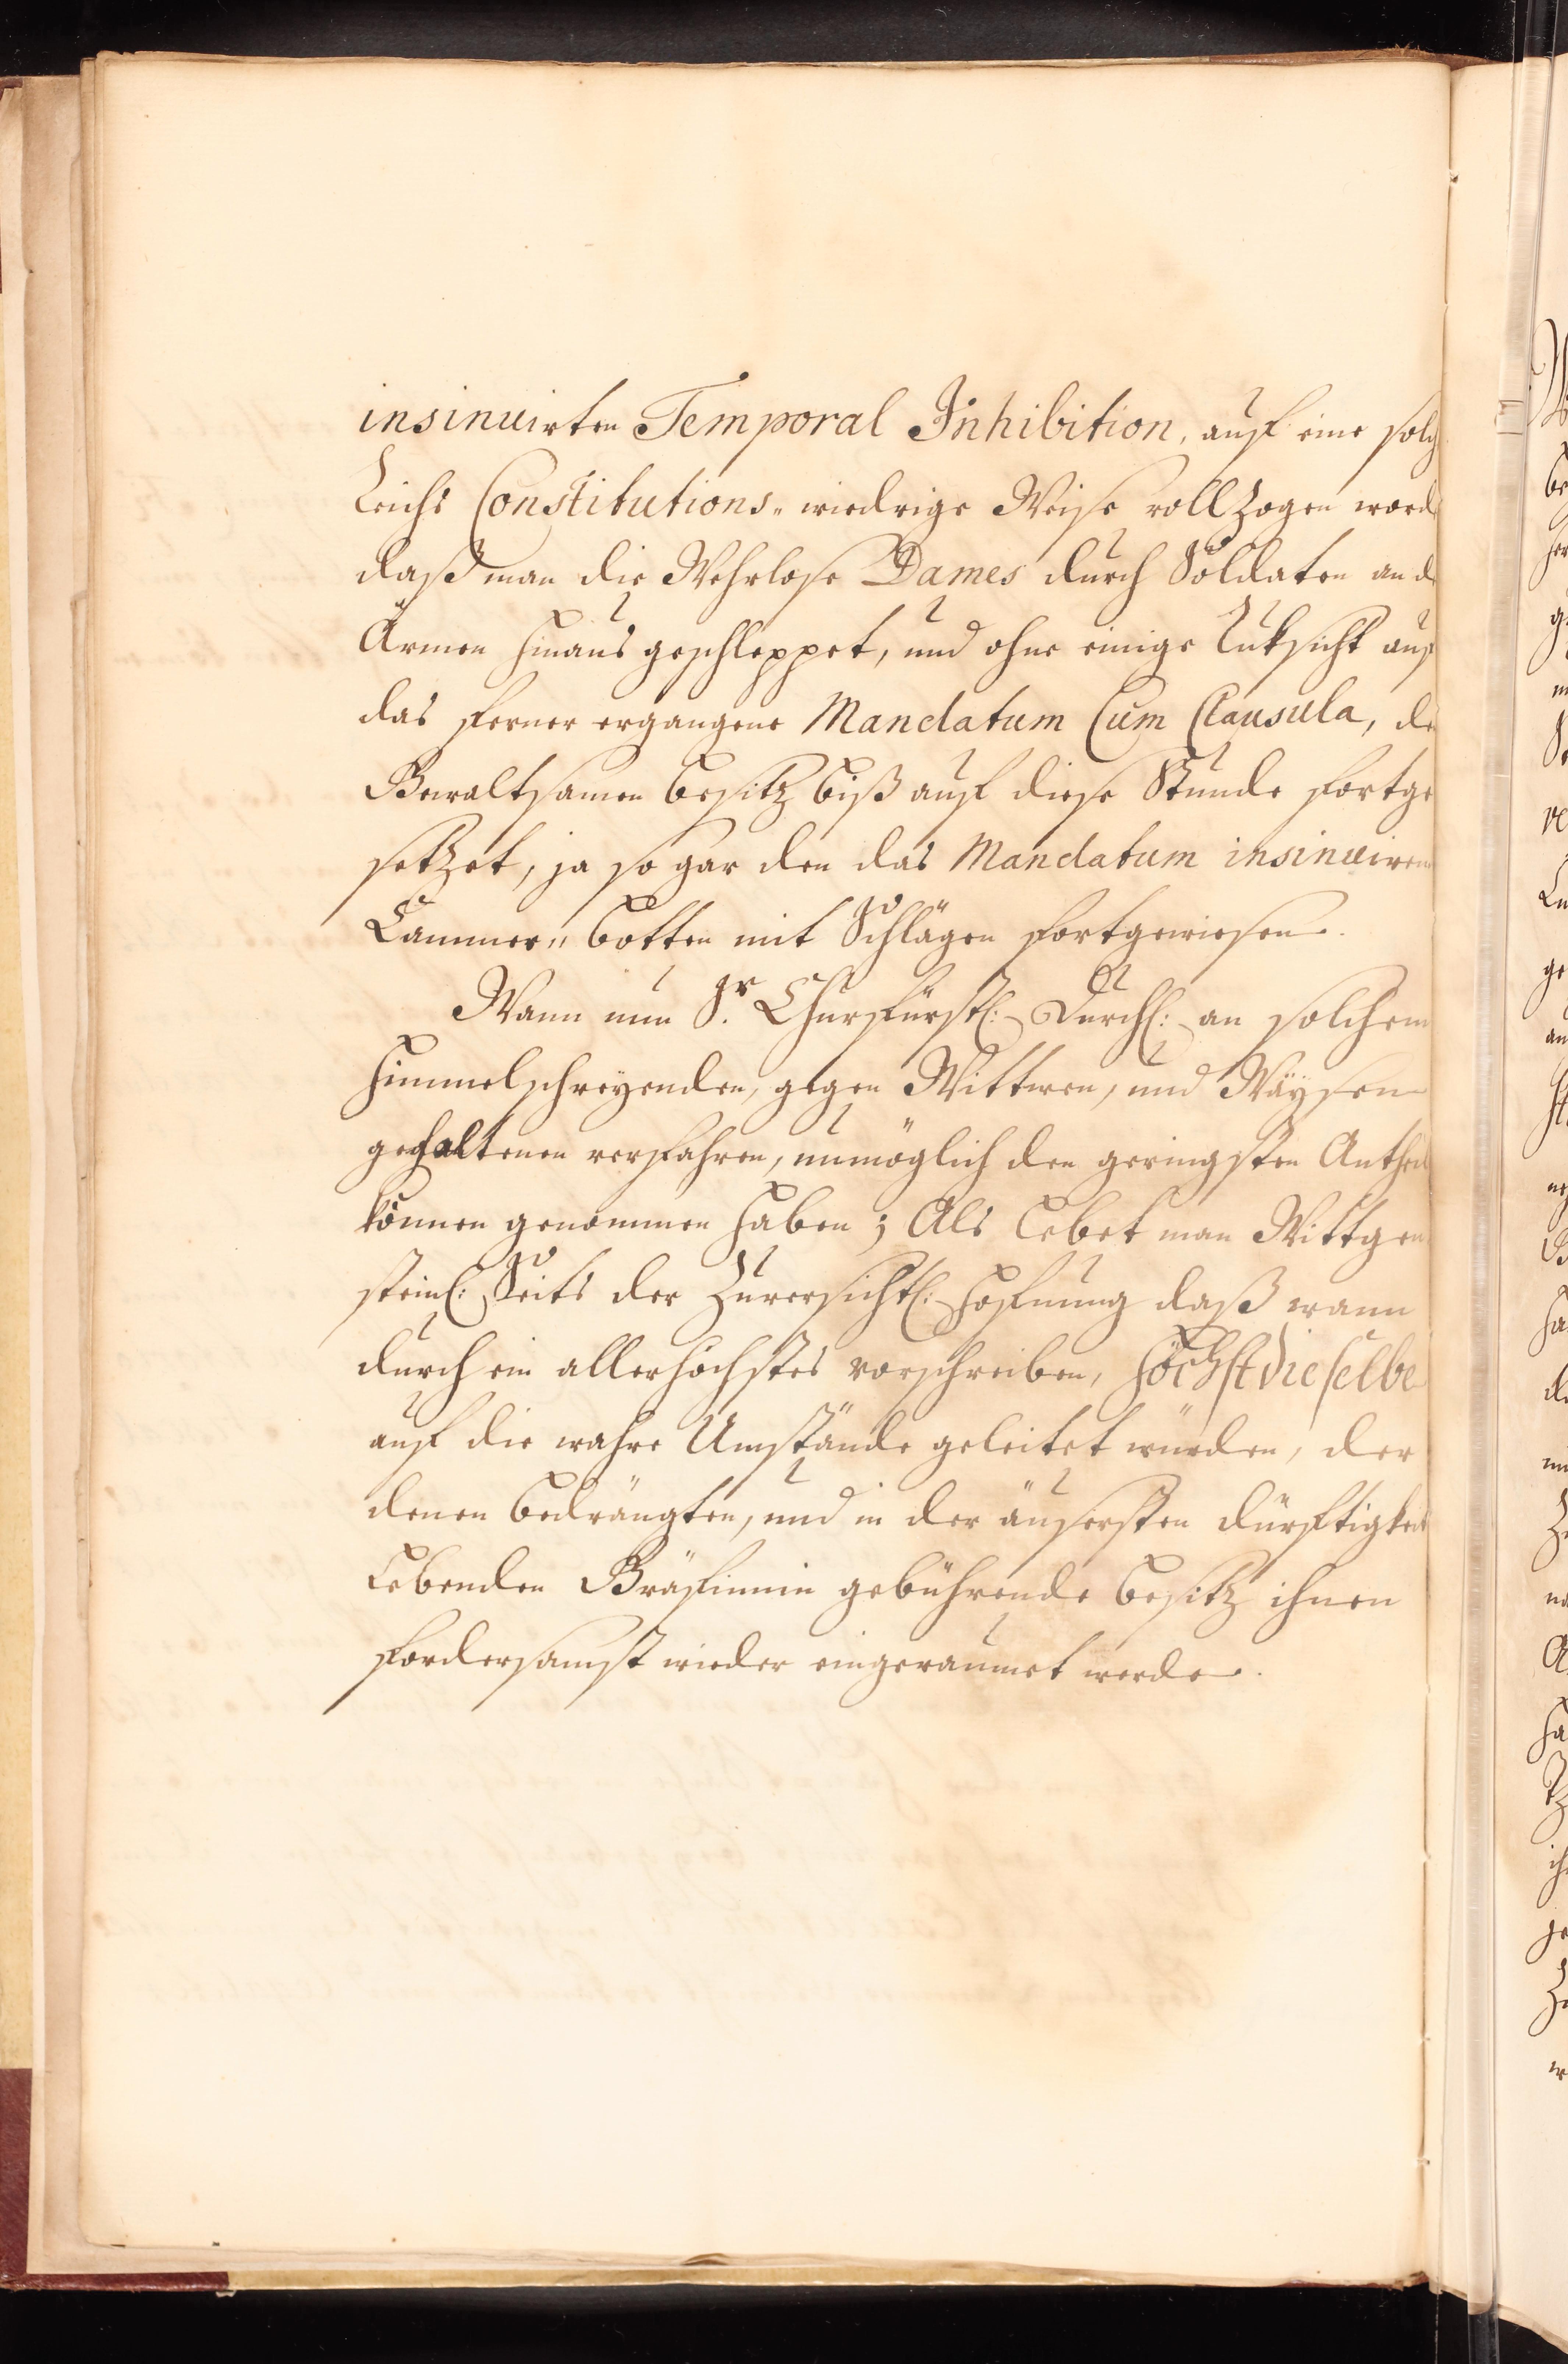 insinuirten Temporal Inhibition, auf eine solch
Reichs Constitutions-wiedrige Weise vollzogen word
daß man die Wehrlose Dames durch Soldaten an d
Armen hinaus geschleppet, und ohne einige Ruksicht auf
das ferner ergangene Mandatum Cum Clausula, de
Gewaltsamen Besitz biß auf diese Stunde fortge
setzet, ja so gar den das Mandatum insinuiren
Cammer-Botten mit Schlägen fortgewiesen.
Wann nun Sr. Churfürstl: Durchl: an solchem
Himmelschreyenden, gegen Wittwen, und Wäysen
gehaltenen verfahren, unmöglich den geringsten Antheil
können genommen haben; Als lebet man Wittgen
steinl: Seits der Zuversichtl: Hofnung daß wann
durch ein allerhöchstes vorschreiben, Höchstdieselbe
auf die wahre Umstände geleitet würden, der
denen bedrängten, und in der äusersten dürftigkeit
Lebenden Gräfinnin gebührende Besitz ihnen
fordersamst wieder eingeraumet werde.